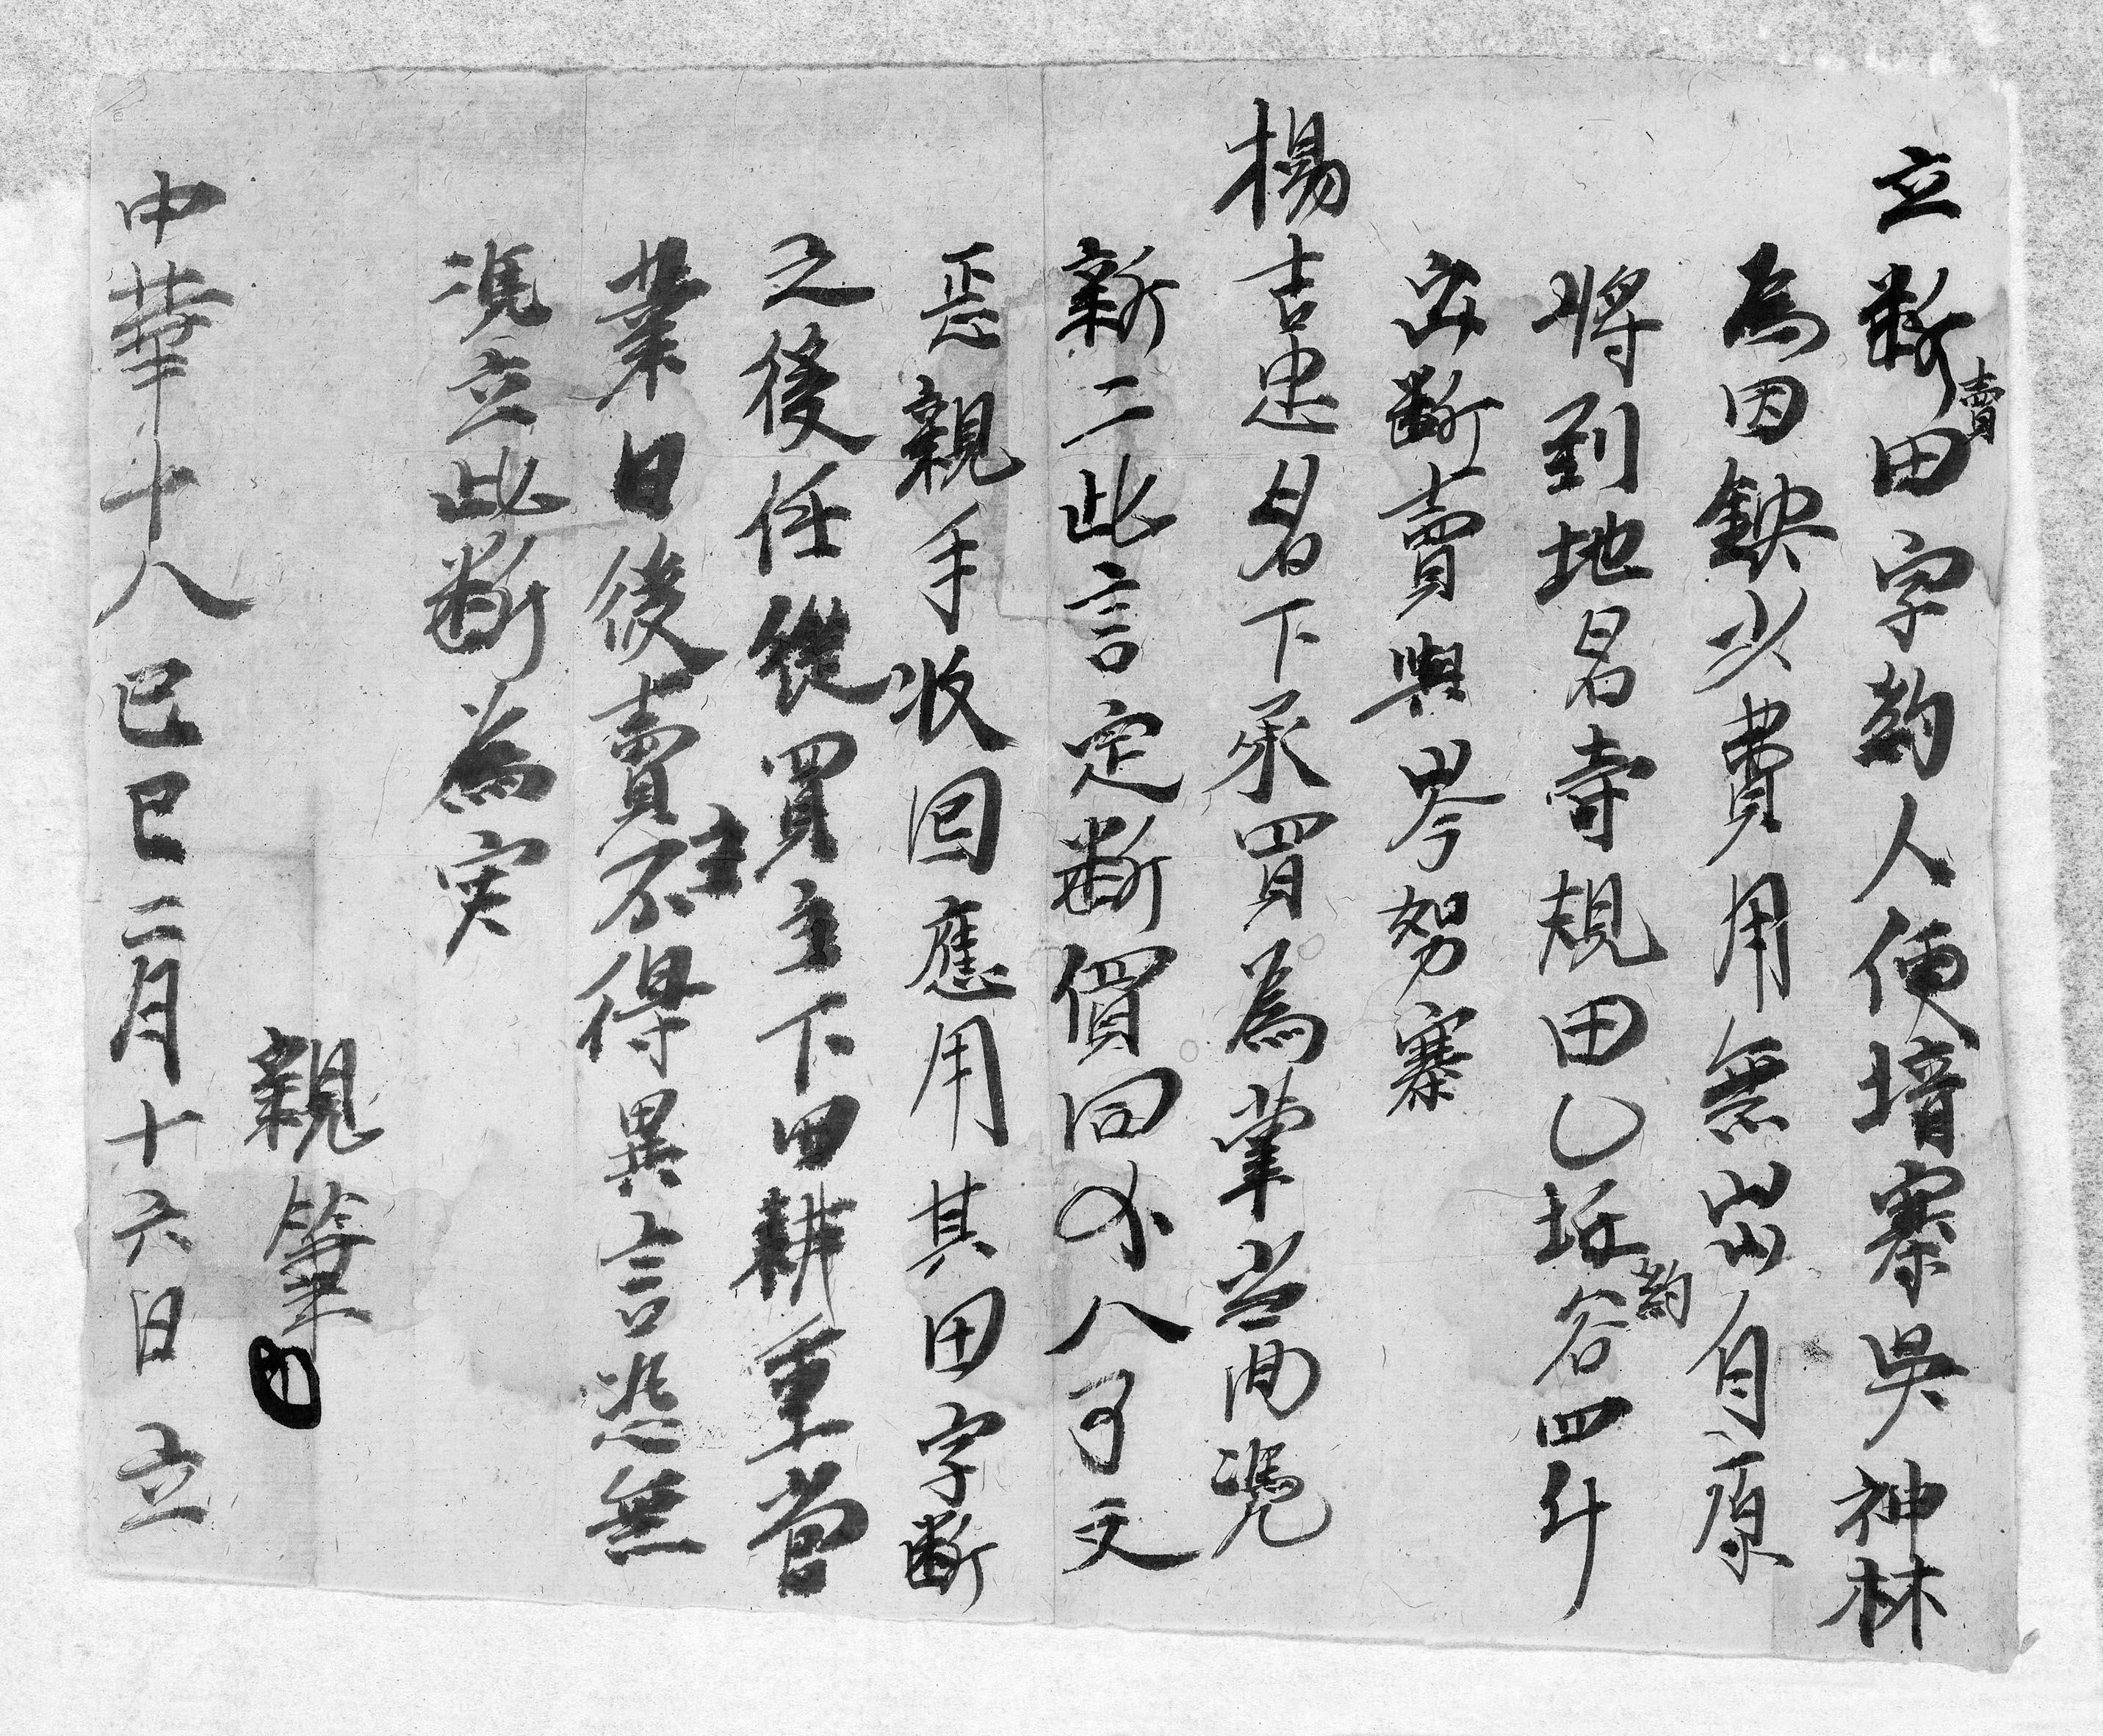 立断賣田字約人便培寨吳神林
為因缺少費用無出自原
將到地名寺規田乙坵約谷四斗
出断賣與岑努寨
楊吉忠名下承買為業当面凴
新二此言定断價同八百文
親手收回應用其田字断
之後任從買主下田耕重管
業日後賣主不得異言恐無
凴立此断為実
親筆
中華十八己巳二月十六日立